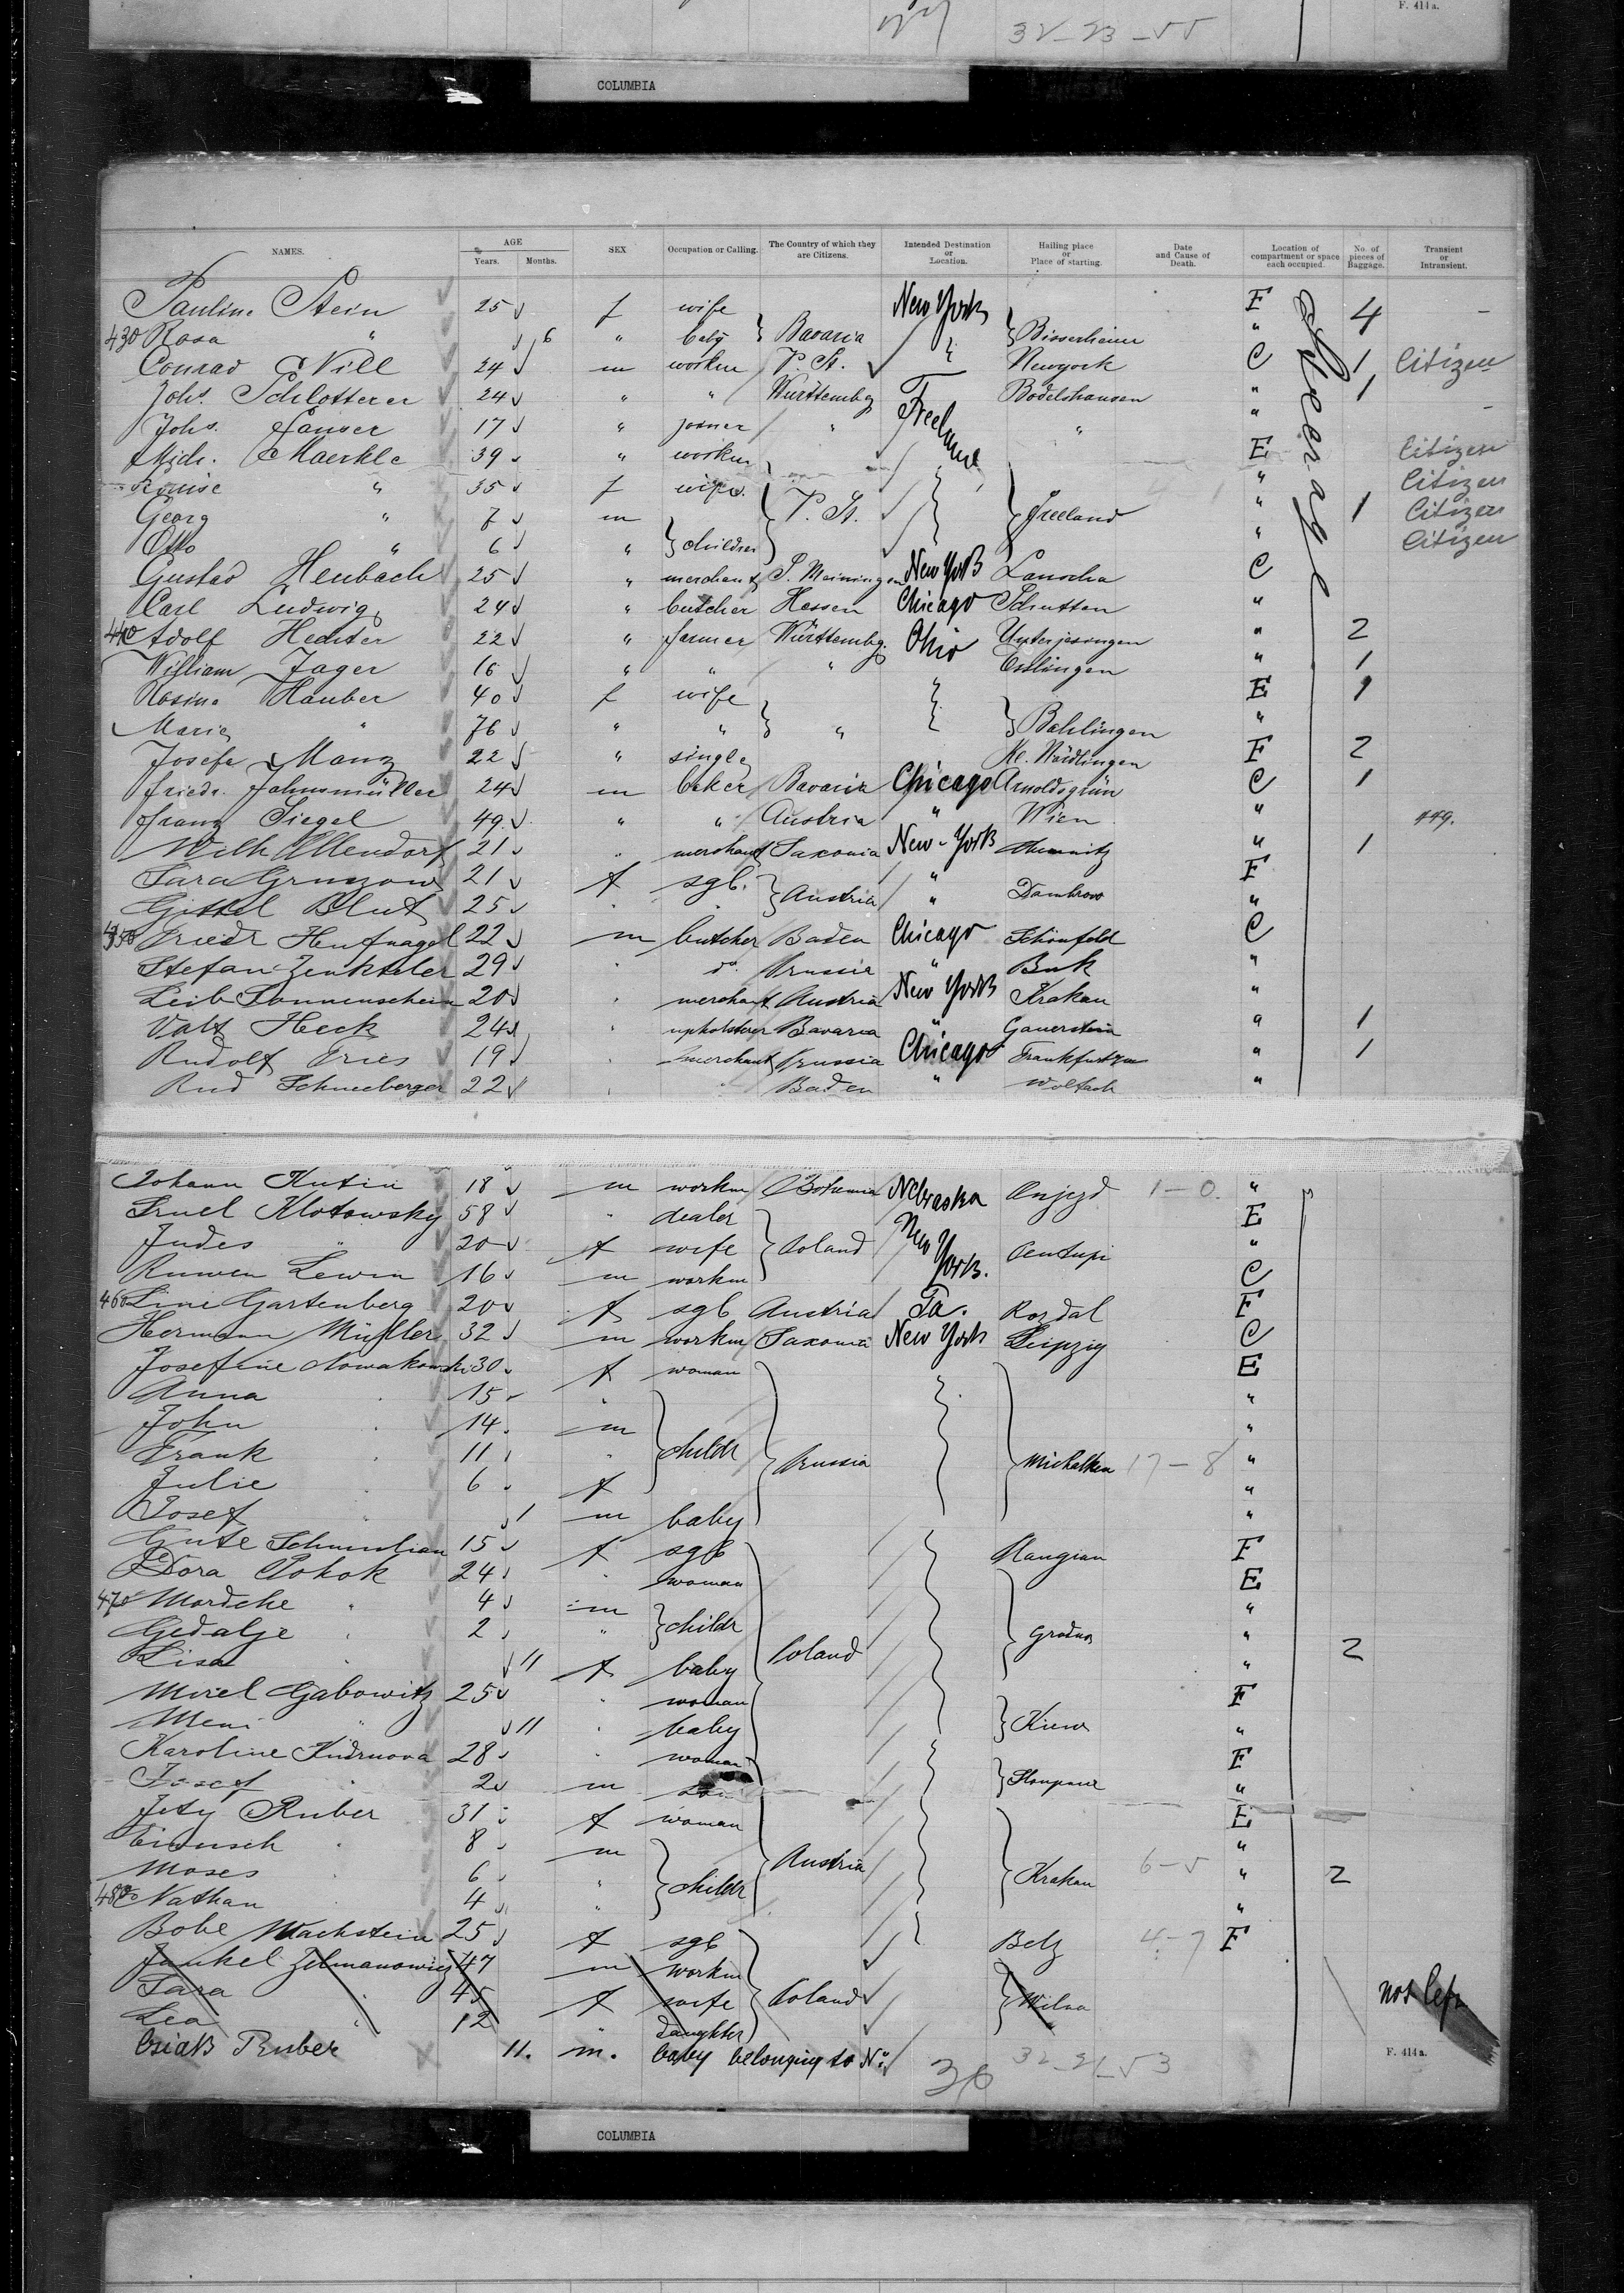 F. 414a.
32-23-55
COLUMBIA
NAMES. AGE Years. Months. SEX Occupation or Calling. The Country of which they are Citizens. Intended Destination or Location. Hailing place or Place of starting. Date and Cause of Death. Location of compartment or space each occupied. No. of pieces of Baggage. Transient or Intransient.
Steerage
Pauline Stein 25 f wife New York F 4 -
430 Rosa " 6 " baby } Bavaria " } Bissersheim "
Conrad Nill 24 m workm V. St. Newyork C 1 Citizen
Johs. Schlotterer 24 " " Württembg Freeland Bodelshausen " 1
Johs. Janser 17 " joiner " " " -
Mich. Maerkle 39 " workm E Citizen
Louise " 35 f wife } V. St. } Freeland " Citizen
Georg " 7 m " 1 Citizen
Otto " 6 " } children " Citizen
Gustav Heubach 25 " merchant S. Meiningen New York Lauscha C
Carl Ludwig 24 " butcher Hessen Chicago "
440 Adolf Hechter 22 " farmer Württembg. Ohio Unterjesingen " 2
William Jager 16 " " " Esslingen " 1
Rosina Hauber 40 f wife E 1
Maria " 76 " " } " } "
Josefa Manz 22 " single Kl. Nördlingen F 2
Friedr. Jahnsmüller 24 m baker Bavaria Chicago Arnoldsgrün C 1
Franz Siegel 49 " " Austria " Wien "
Wilh Allendorf 21 " merchant Saxonia New-York Chemnitz " 1
Sara 21 f sgl. } Austria " Dombrow F
Gittel Blut 25 " "
450 Friedr Hufnagel 22 m butcher Baden Chicago Schönfeld C
Stefan Zenkteler 29 " do. Prussia " Buk "
Leib Sonnenschein 20 " merchant Austria New York Krakau "
Valt Heck 24 " upholsterer Bavaria " " 1
Rudolf Fries 19 " merchant Prussia Chicago " 1
Rud Schneeberger 22 " " Baden " Wolfach "
Johann Kutin 18 m workm Bohemia Nebraska 1-0. "
Sruel Klotowsky 58 " dealer } Poland New York. E
Judes " 20 f wife "
Ruwen Lewin 16 m workm C
460 Line Gartenberg 20 f sgl Austria Rozdal F
Hermann Müller 32 m workm Saxonia New York Leipzig C
Josefine Nowakowski 30 f woman E
Anna 15 " "
John 14 m "
Frank 11 " } childr } Prussia } Michalken 17-8 "
Julie 6 f "
Josef 1 m baby "
Gute 15 f sgl F
Dora Pokok 24 " woman E
470 Mordche " 4 m "
Gedalje 2 " } childr } Poland } Grodno " 2
Lisa 11 f baby "
Mirel Gabowitz 25 " woman F
Meni " 11 " baby } Kiew "
Karoline Kudrnova 28 " woman F
Josef 2 m son "
Jety Ruber 31 f woman E
8 m "
Moses 6 " } childr } Austria } Krakau 6-5 " 2
480 Nathan 4 " "
Bobe Wachstein 25 f sgl Belz 4-7 F
Jankel Zelmanowicz 47 m workm
Sara 45 f wife } Poland } Wilna not left
Lea " 12 " daughter
Osias Ruber 11. m. baby belonging to No.
36 32-21-53
F. 414a.
COLUMBIA